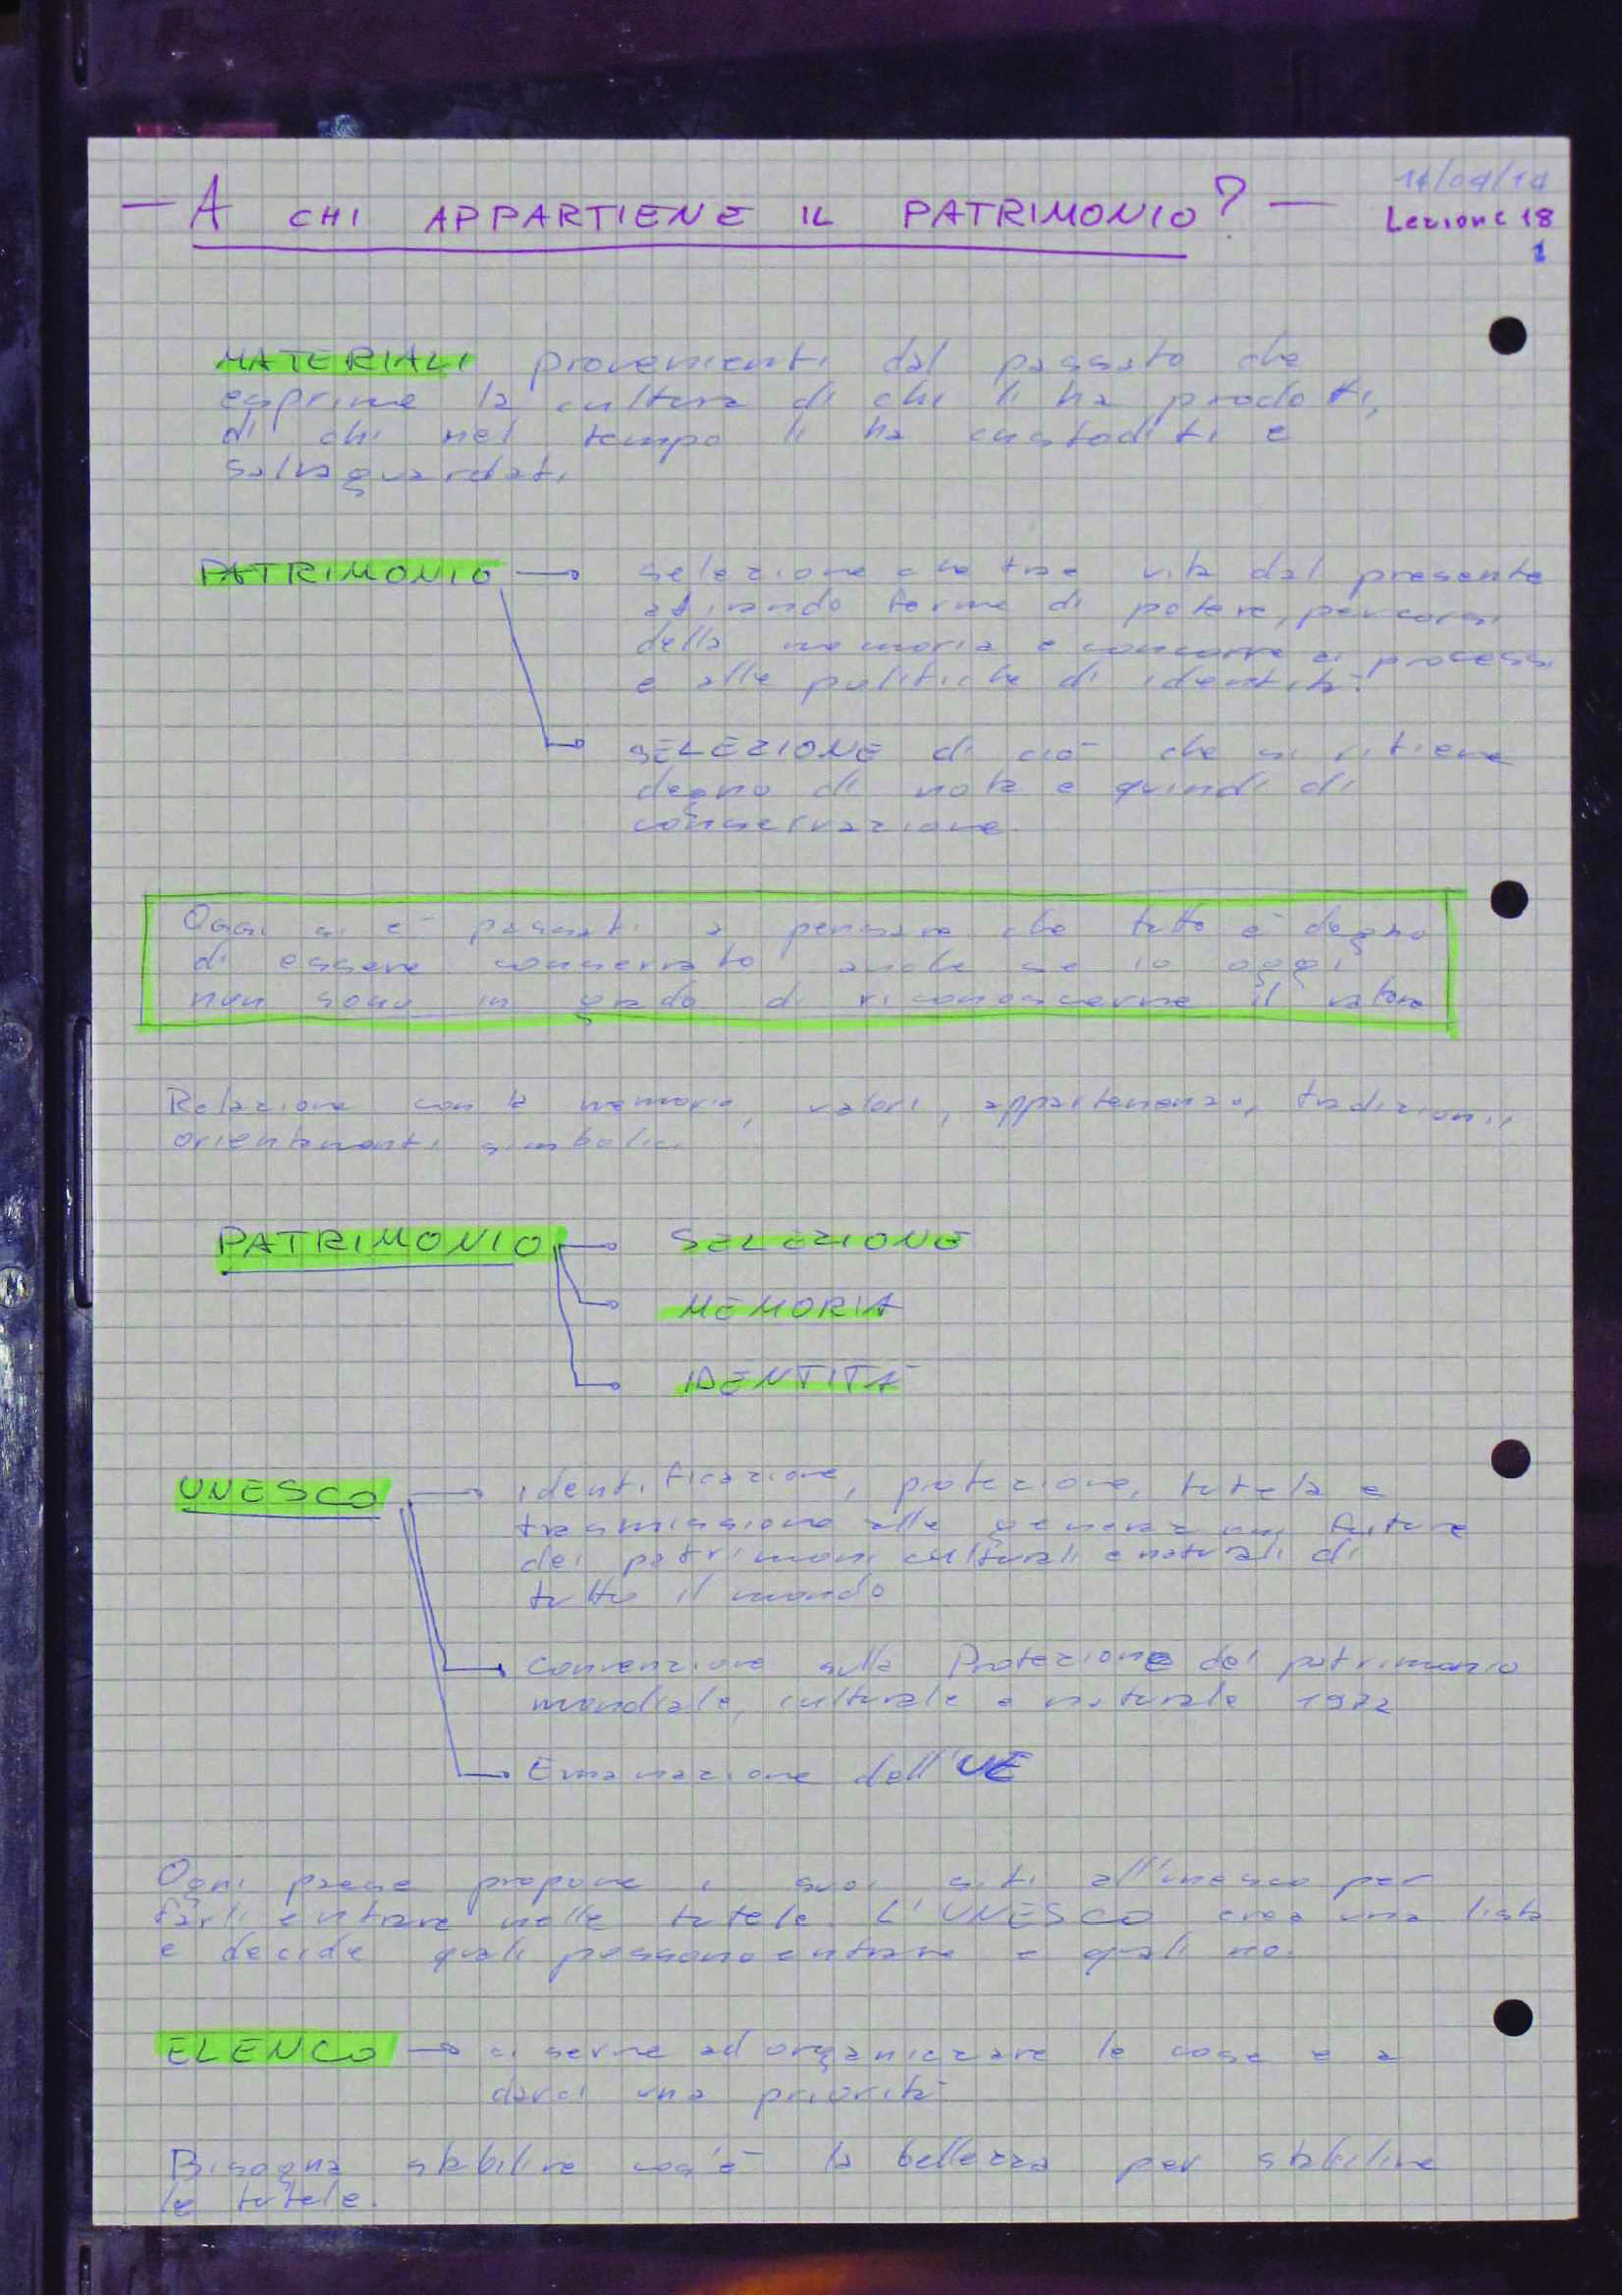 — A CHI APPARTIENE IL PATRIMONIO? —
Lezione 18
1
MATERIALI provenienti dal passato che
esprime la cultura di chi li ha prodotti,
di chi nel tempo li ha custoditi e
salvaguardati.
PATRIMONIO → selezione che trae vita dal presente
attivando forme di potere, percorsi
della memoria e concorre ai processi
e alle politiche di identità.
SELEZIONE di ciò che si ritiene
degno di nota e quindi di
conservazione.
Oggi si è passati a pensare che tutto è degno
di essere conservato anche se io oggi
non sono in grado di riconoscerne il valore
Relazione con la memoria, valori, appartenenza, tradizioni,
orientamenti simbolici.
PATRIMONIO → SELEZIONE
MEMORIA
IDENTITÀ
UNESCO → identificazione, protezione, tutela e
trasmissione alle generazioni future
dei patrimoni culturali e naturali di
tutto il mondo
Convenzione sulla Protezione del patrimonio
mondiale, culturale e naturale 1972
Emanazione dell'UE
Ogni paese propone i suoi siti all'unesco per
farli entrare nelle tutele L'UNESCO crea una lista
e decide quali possono entrare e quali no.
ELENCO → ci serve ad organizzare le cose e a
darci una priorità
Bisogna stabilire cos'è la bellezza per stabilire
le tutele.